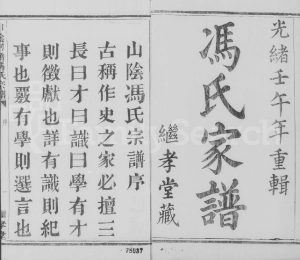 光緒壬午年重輯
馮氏家譜
繼孝堂藏
山陰馮氏宗譜序
古稱作史之家必擅三
長曰才曰識曰學有才
則徵獻也詳有識則紀
事也覈有學則選言也
78037